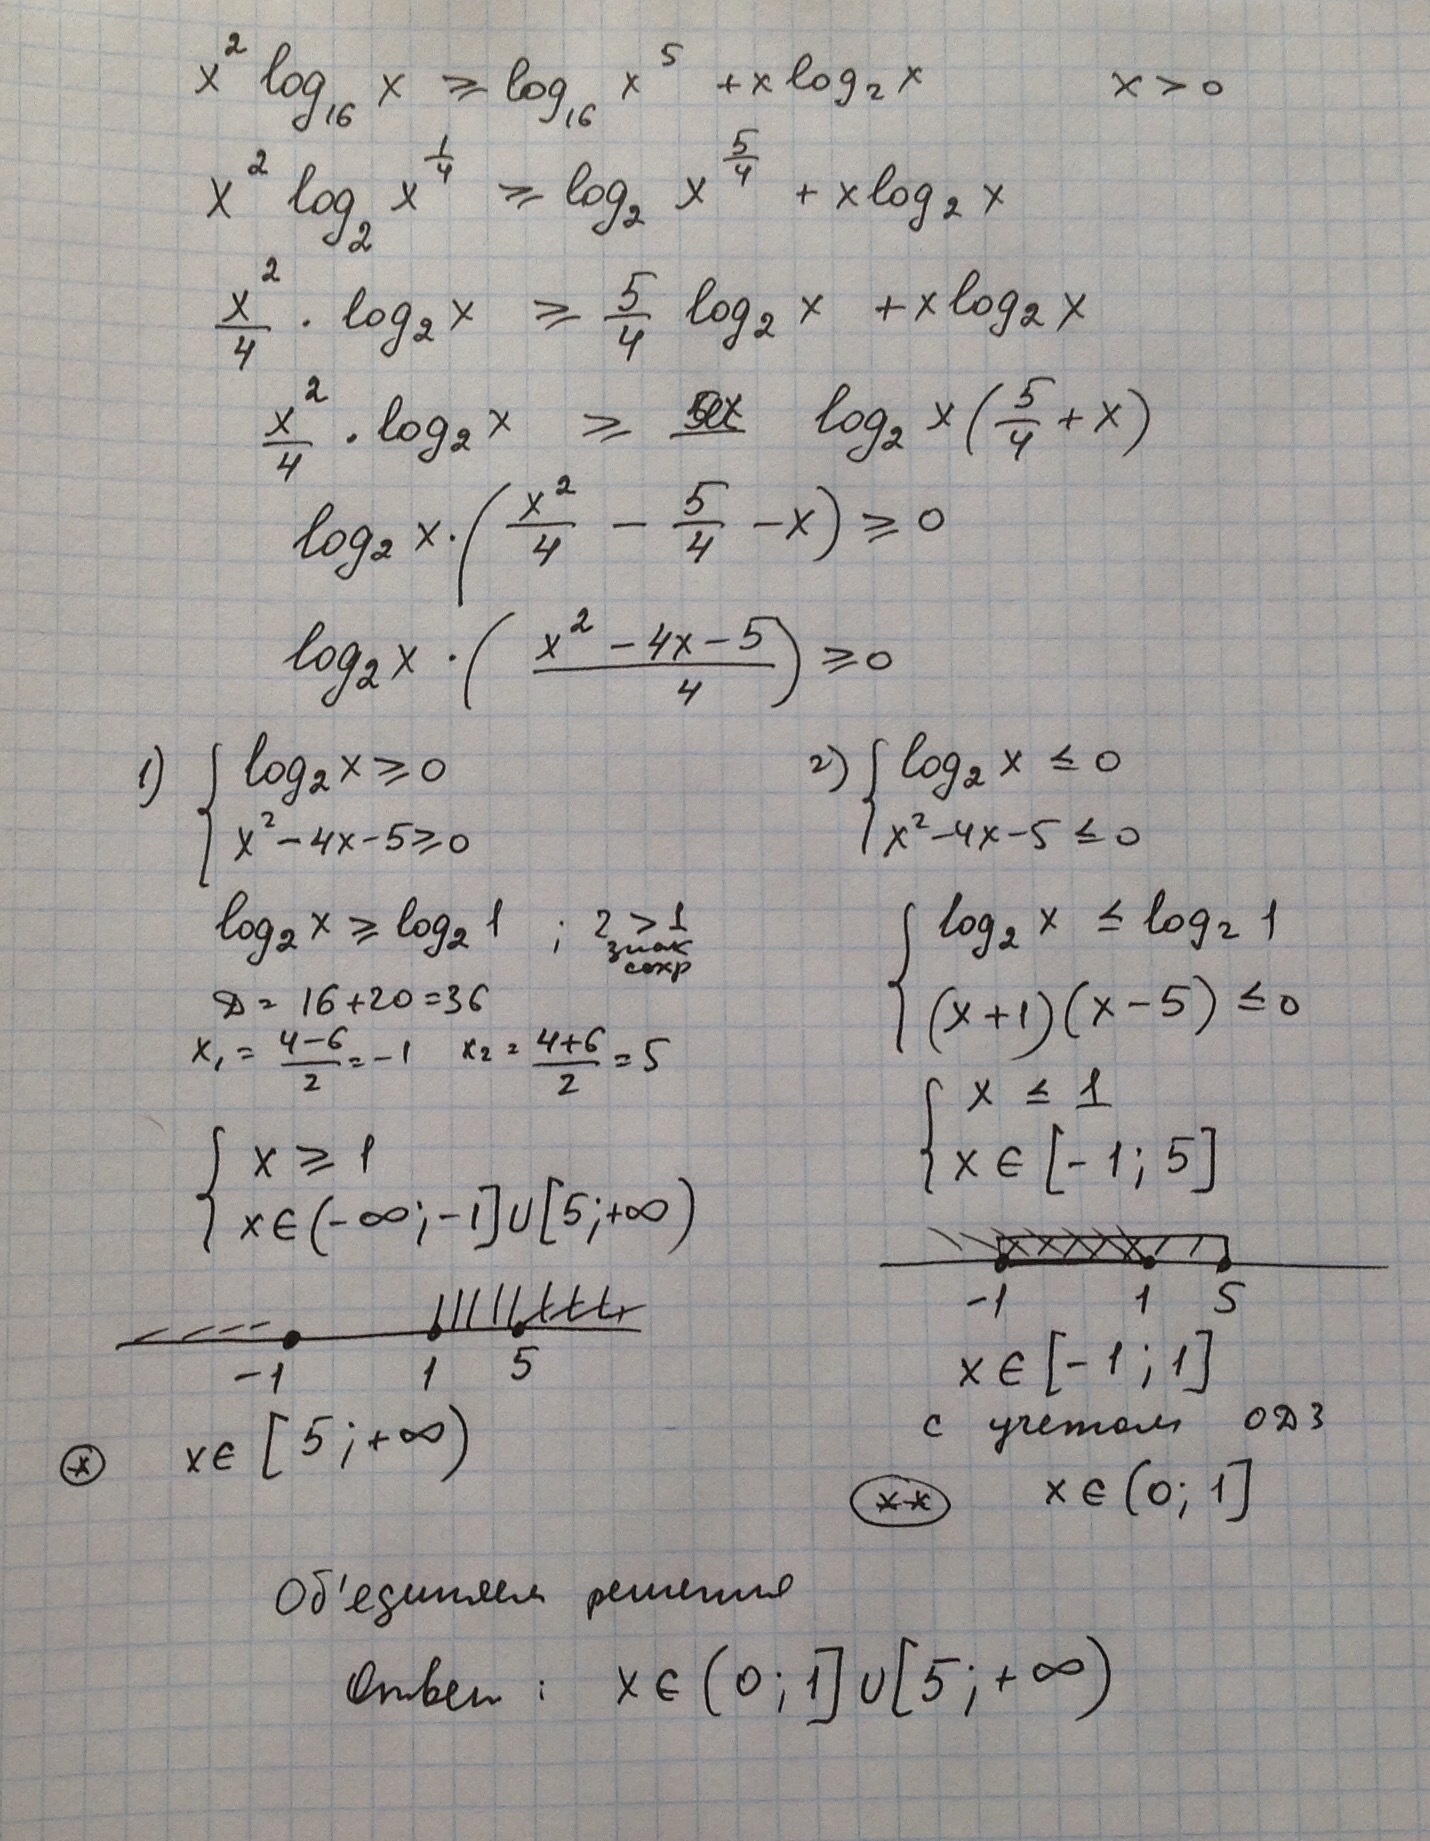 x² log₁₆ x ≥ log₁₆ x⁵ + x log₂ x x > 0
x² log₂ x^(1/4) ≥ log₂ x^(5/4) + x log₂ x
x²/4 · log₂ x ≥ 5/4 log₂ x + x log₂ x
x²/4 · log₂ x ≥ log₂ x (5/4 + x)
log₂ x · (x²/4 − 5/4 − x) ≥ 0
log₂ x · ((x² − 4x − 5)/4) ≥ 0
1) { log₂ x ≥ 0
x² − 4x − 5 ≥ 0
log₂ x ≥ log₂ 1 ; 2 > 1
знак
сохр
D = 16 + 20 = 36
x₁ = (4−6)/2 = −1 x₂ = (4+6)/2 = 5
{ x ≥ 1
x ∈ (−∞; −1] ∪ [5; +∞)
−1 1 5
⊛ x ∈ [5; +∞)
2) { log₂ x ≤ 0
x² − 4x − 5 ≤ 0
{ log₂ x ≤ log₂ 1
(x+1)(x−5) ≤ 0
{ x ≤ 1
x ∈ [−1; 5]
−1 1 5
x ∈ [−1; 1]
с учетом ОДЗ
(**) x ∈ (0; 1]
Об'единяем решения
Ответ : x ∈ (0; 1] ∪ [5; +∞)